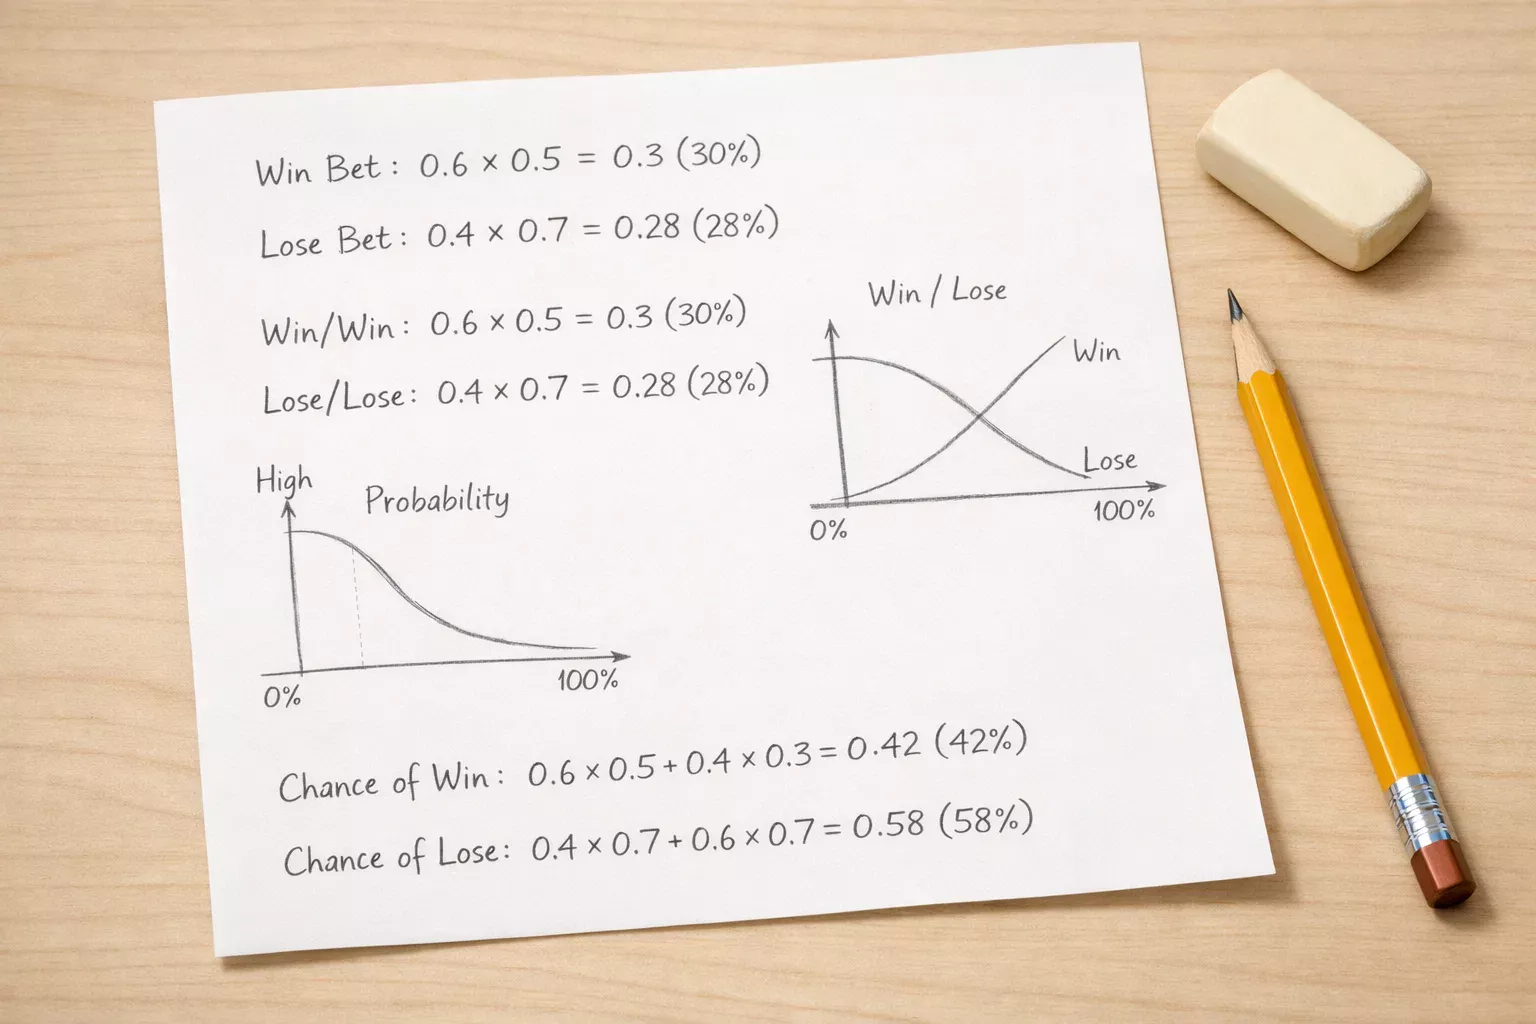 Win Bet: 0.6 × 0.5 = 0.3 (30%)
Lose Bet: 0.4 × 0.7 = 0.28 (28%)
Win/Win: 0.6 × 0.5 = 0.3 (30%)
Lose/Lose: 0.4 × 0.7 = 0.28 (28%)
Win / Lose
Win
Lose
0%
100%
High
Probability
0%
100%
Chance of Win: 0.6 × 0.5 + 0.4 × 0.3 = 0.42 (42%)
Chance of Lose: 0.4 × 0.7 + 0.6 × 0.7 = 0.58 (58%)